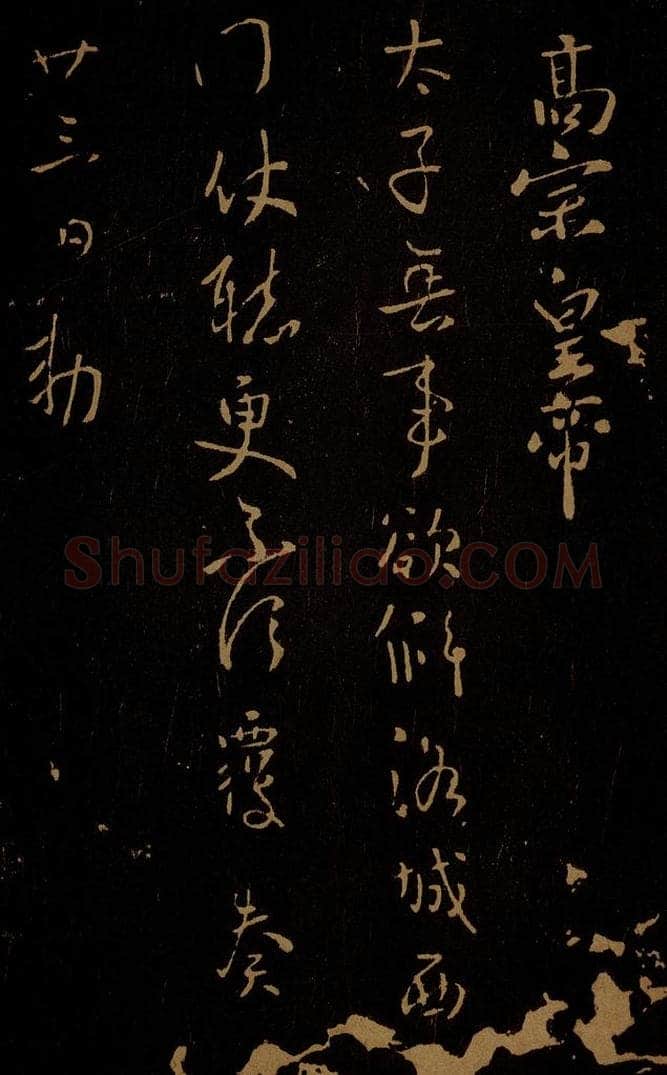 高宗皇帝
太子無事欲解洛城西
门仗聴更不須覆奏
廿三日勅
Shufaziliao.COM